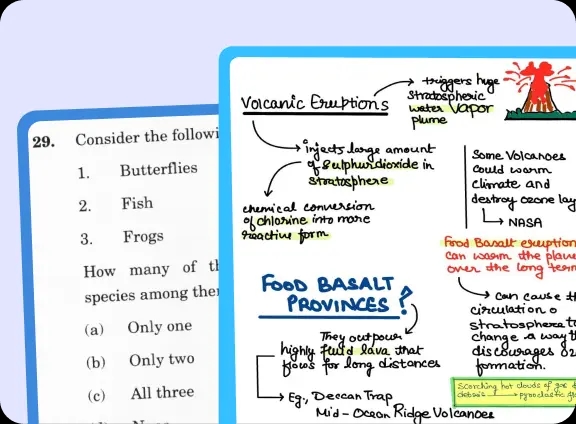 29. Consider the followi
1. Butterflies
2. Fish
3. Frogs
How many of th
species among the
(a) Only one
(b) Only two
(c) All three
Volcanic Eruptions
triggers huge
stratospheric
water vapor
plume
injects large amount
of sulphurdioxide in
stratosphere
chemical conversion
of chlorine into more
reactive form
Some Volcanoes
could warm
climate and
destroy ozone lay
NASA
Food Basalt eruption
can warm the plane
over the long term
can cause th
circulation o
stratosphere to
change a way th
discourages oz
formation.
FOOD BASALT
PROVINCES?
They outpour
highly fluid lava that
flows for long distances
Eg., Deccan Trap
Mid-Ocean Ridge Volcanoes
Scorching hot clouds of gas &
debris pyroclastic